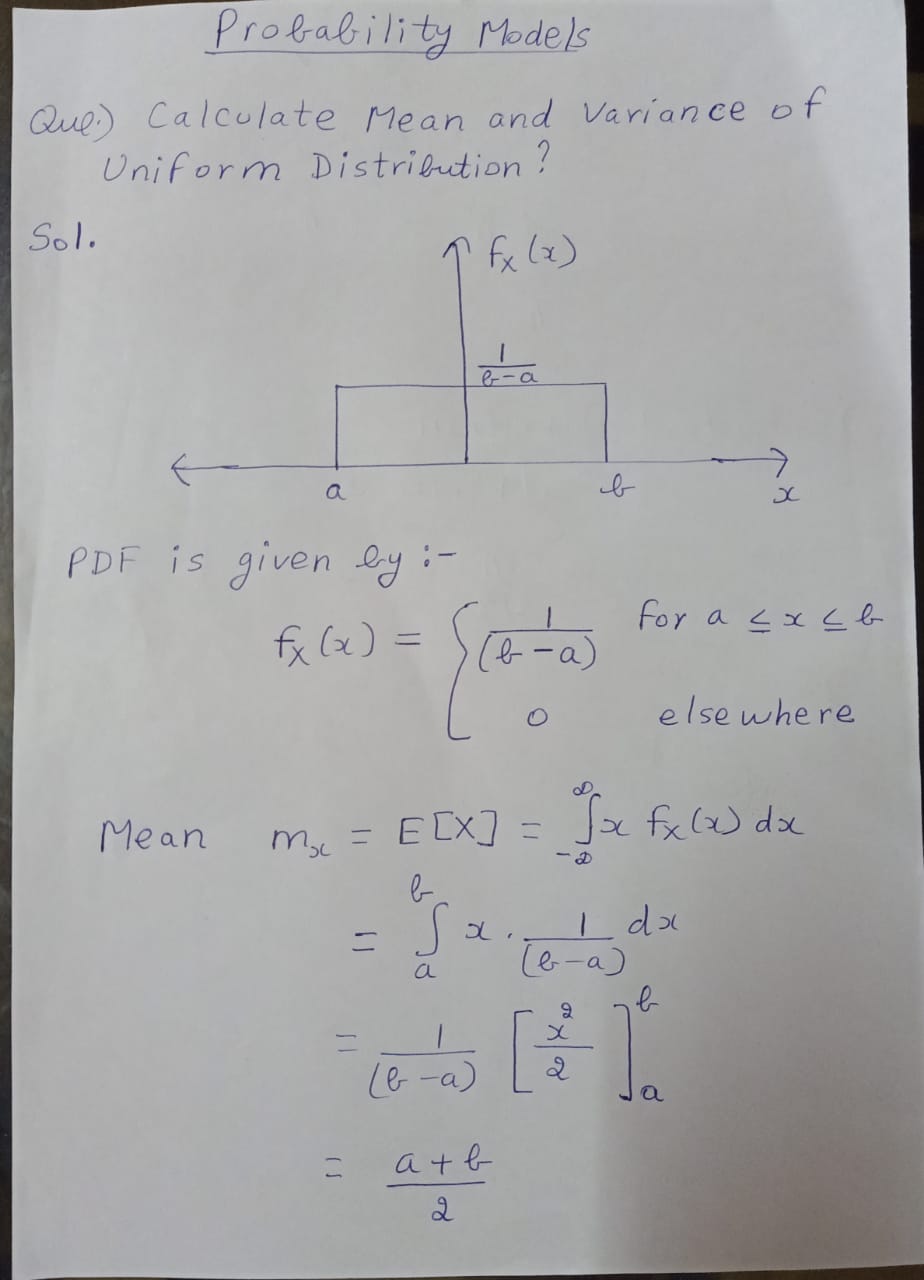 Probability Models
Que:) Calculate Mean and Variance of
Uniform Distribution?
Sol.
fx(x)
1/(b-a)
a b x
PDF is given by :-
fx(x) = { 1/(b-a) for a ≤ x ≤ b
0 elsewhere
Mean mx = E[X] = ∫_{-∞}^{∞} x fx(x) dx
= ∫_a^b x . 1/(b-a) dx
= 1/(b-a) [x²/2]_a^b
= (a+b)/2